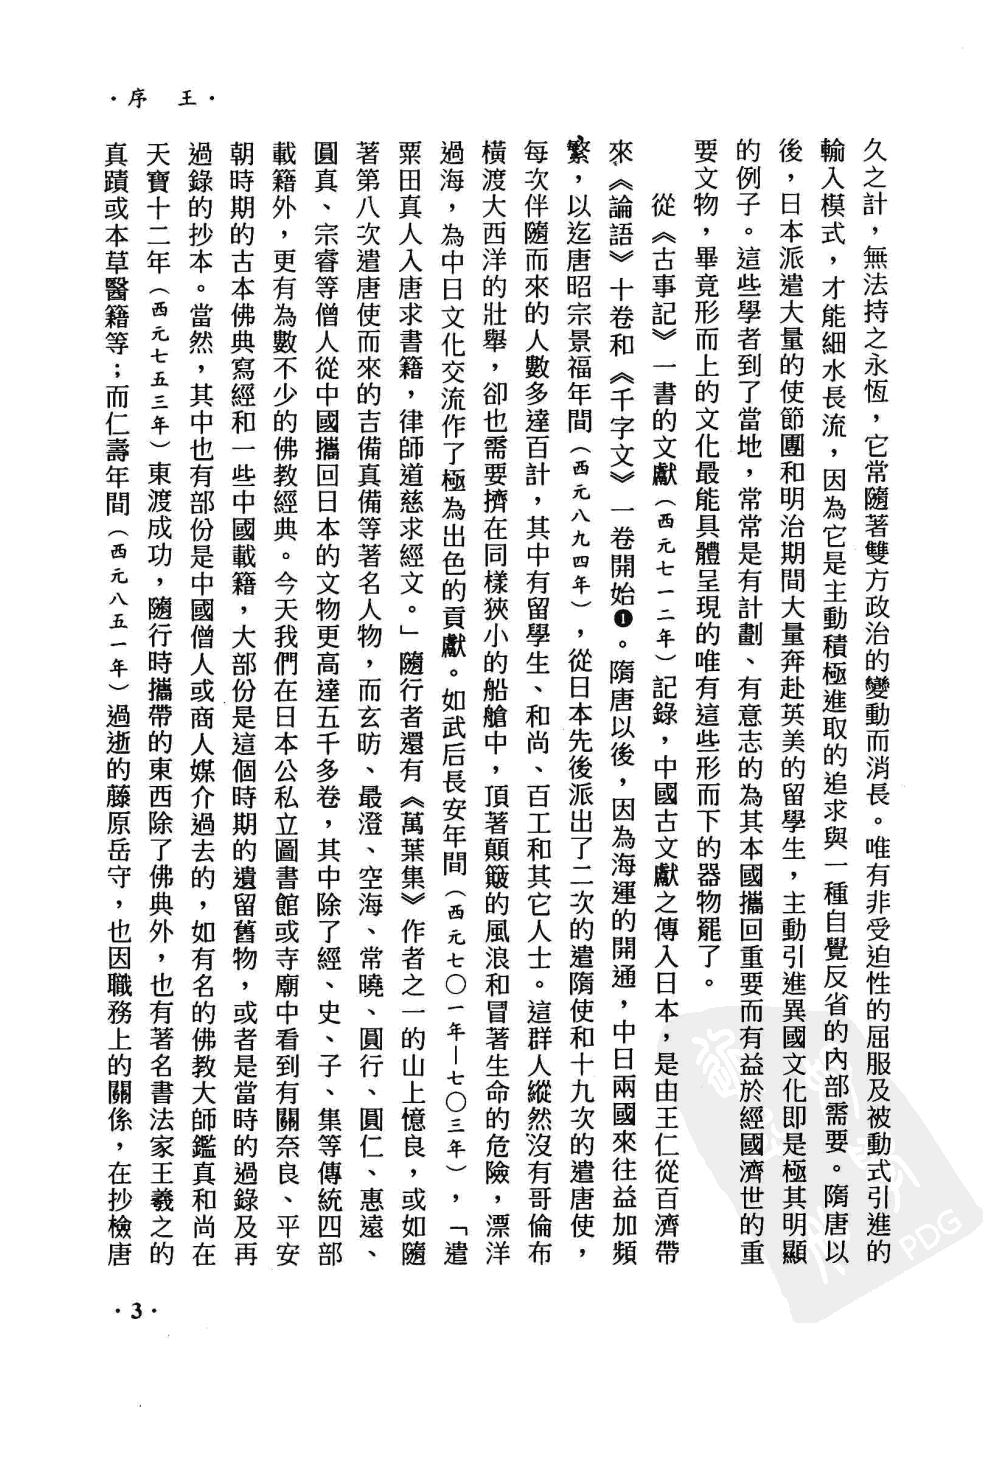 ·王　序·
久之計，無法持之永恆，它常隨著雙方政治的變動而消長。唯有非受迫性的屈服及被動式引進的
輸入模式，才能細水長流，因為它是主動積極進取的追求與一種自覺反省的內部需要。隋唐以
後，日本派遣大量的使節團和明治期間大量奔赴英美的留學生，主動引進異國文化即是極其明顯
的例子。這些學者到了當地，常常是有計劃、有意志的為其本國攜回重要而有益於經國濟世的重
要文物，畢竟形而上的文化最能具體呈現的唯有這些形而下的器物罷了。
從《古事記》一書的文獻（西元七一二年）記錄，中國古文獻之傳入日本，是由王仁從百濟帶
來《論語》十卷和《千字文》一卷開始❶。隋唐以後，因為海運的開通，中日兩國來往益加頻
繁，以迄唐昭宗景福年間（西元八九四年），從日本先後派出了二次的遣隋使和十九次的遣唐使，
每次伴隨而來的人數多達百計，其中有留學生、和尚、百工和其它人士。這群人縱然沒有哥倫布
橫渡大西洋的壯舉，卻也需要擠在同樣狹小的船艙中，頂著顛簸的風浪和冒著生命的危險，漂洋
過海，為中日文化交流作了極為出色的貢獻。如武后長安年間（西元七〇一年－七〇三年），「遣
粟田真人入唐求書籍，律師道慈求經文。」隨行者還有《萬葉集》作者之一的山上憶良，或如隨
著第八次遣唐使而來的吉備真備等著名人物，而玄昉、最澄、空海、常曉、圓行、圓仁、惠遠、
圓真、宗睿等僧人從中國攜回日本的文物更高達五千多卷，其中除了經、史、子、集等傳統四部
載籍外，更有為數不少的佛教經典。今天我們在日本公私立圖書館或寺廟中看到有關奈良、平安
朝時期的古本佛典寫經和一些中國載籍，大部份是這個時期的遺留舊物，或者是當時的過錄及再
過錄的抄本。當然，其中也有部份是中國僧人或商人媒介過去的，如有名的佛教大師鑑真和尚在
天寶十二年（西元七五三年）東渡成功，隨行時攜帶的東西除了佛典外，也有著名書法家王羲之的
真蹟或本草醫籍等；而仁壽年間（西元八五一年）過逝的藤原岳守，也因職務上的關係，在抄檢唐
·3·
PDG